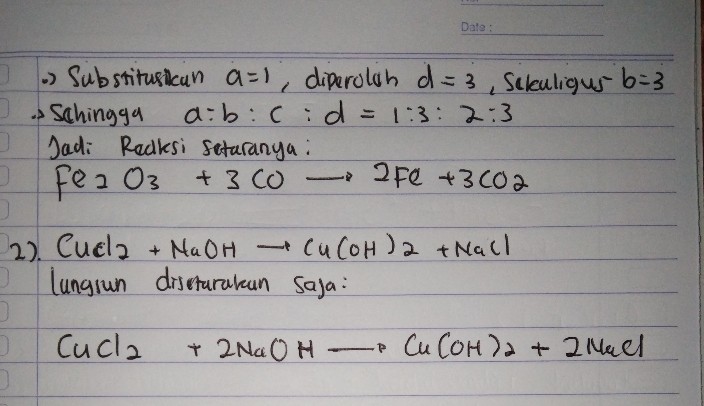 Date :
•> Substitusikan a=1, diperoleh d = 3, sekaligus b=3
•> Sehingga a:b : c : d = 1:3: 2:3
Jadi Reaksi setaranya:
Fe2O3 + 3 CO → 2Fe +3CO2
2). CuCl2 + NaOH → Cu(OH)2 +NaCl
langsun disetarakan saja:
CuCl2 + 2NaOH → Cu(OH)2 + 2NaCl